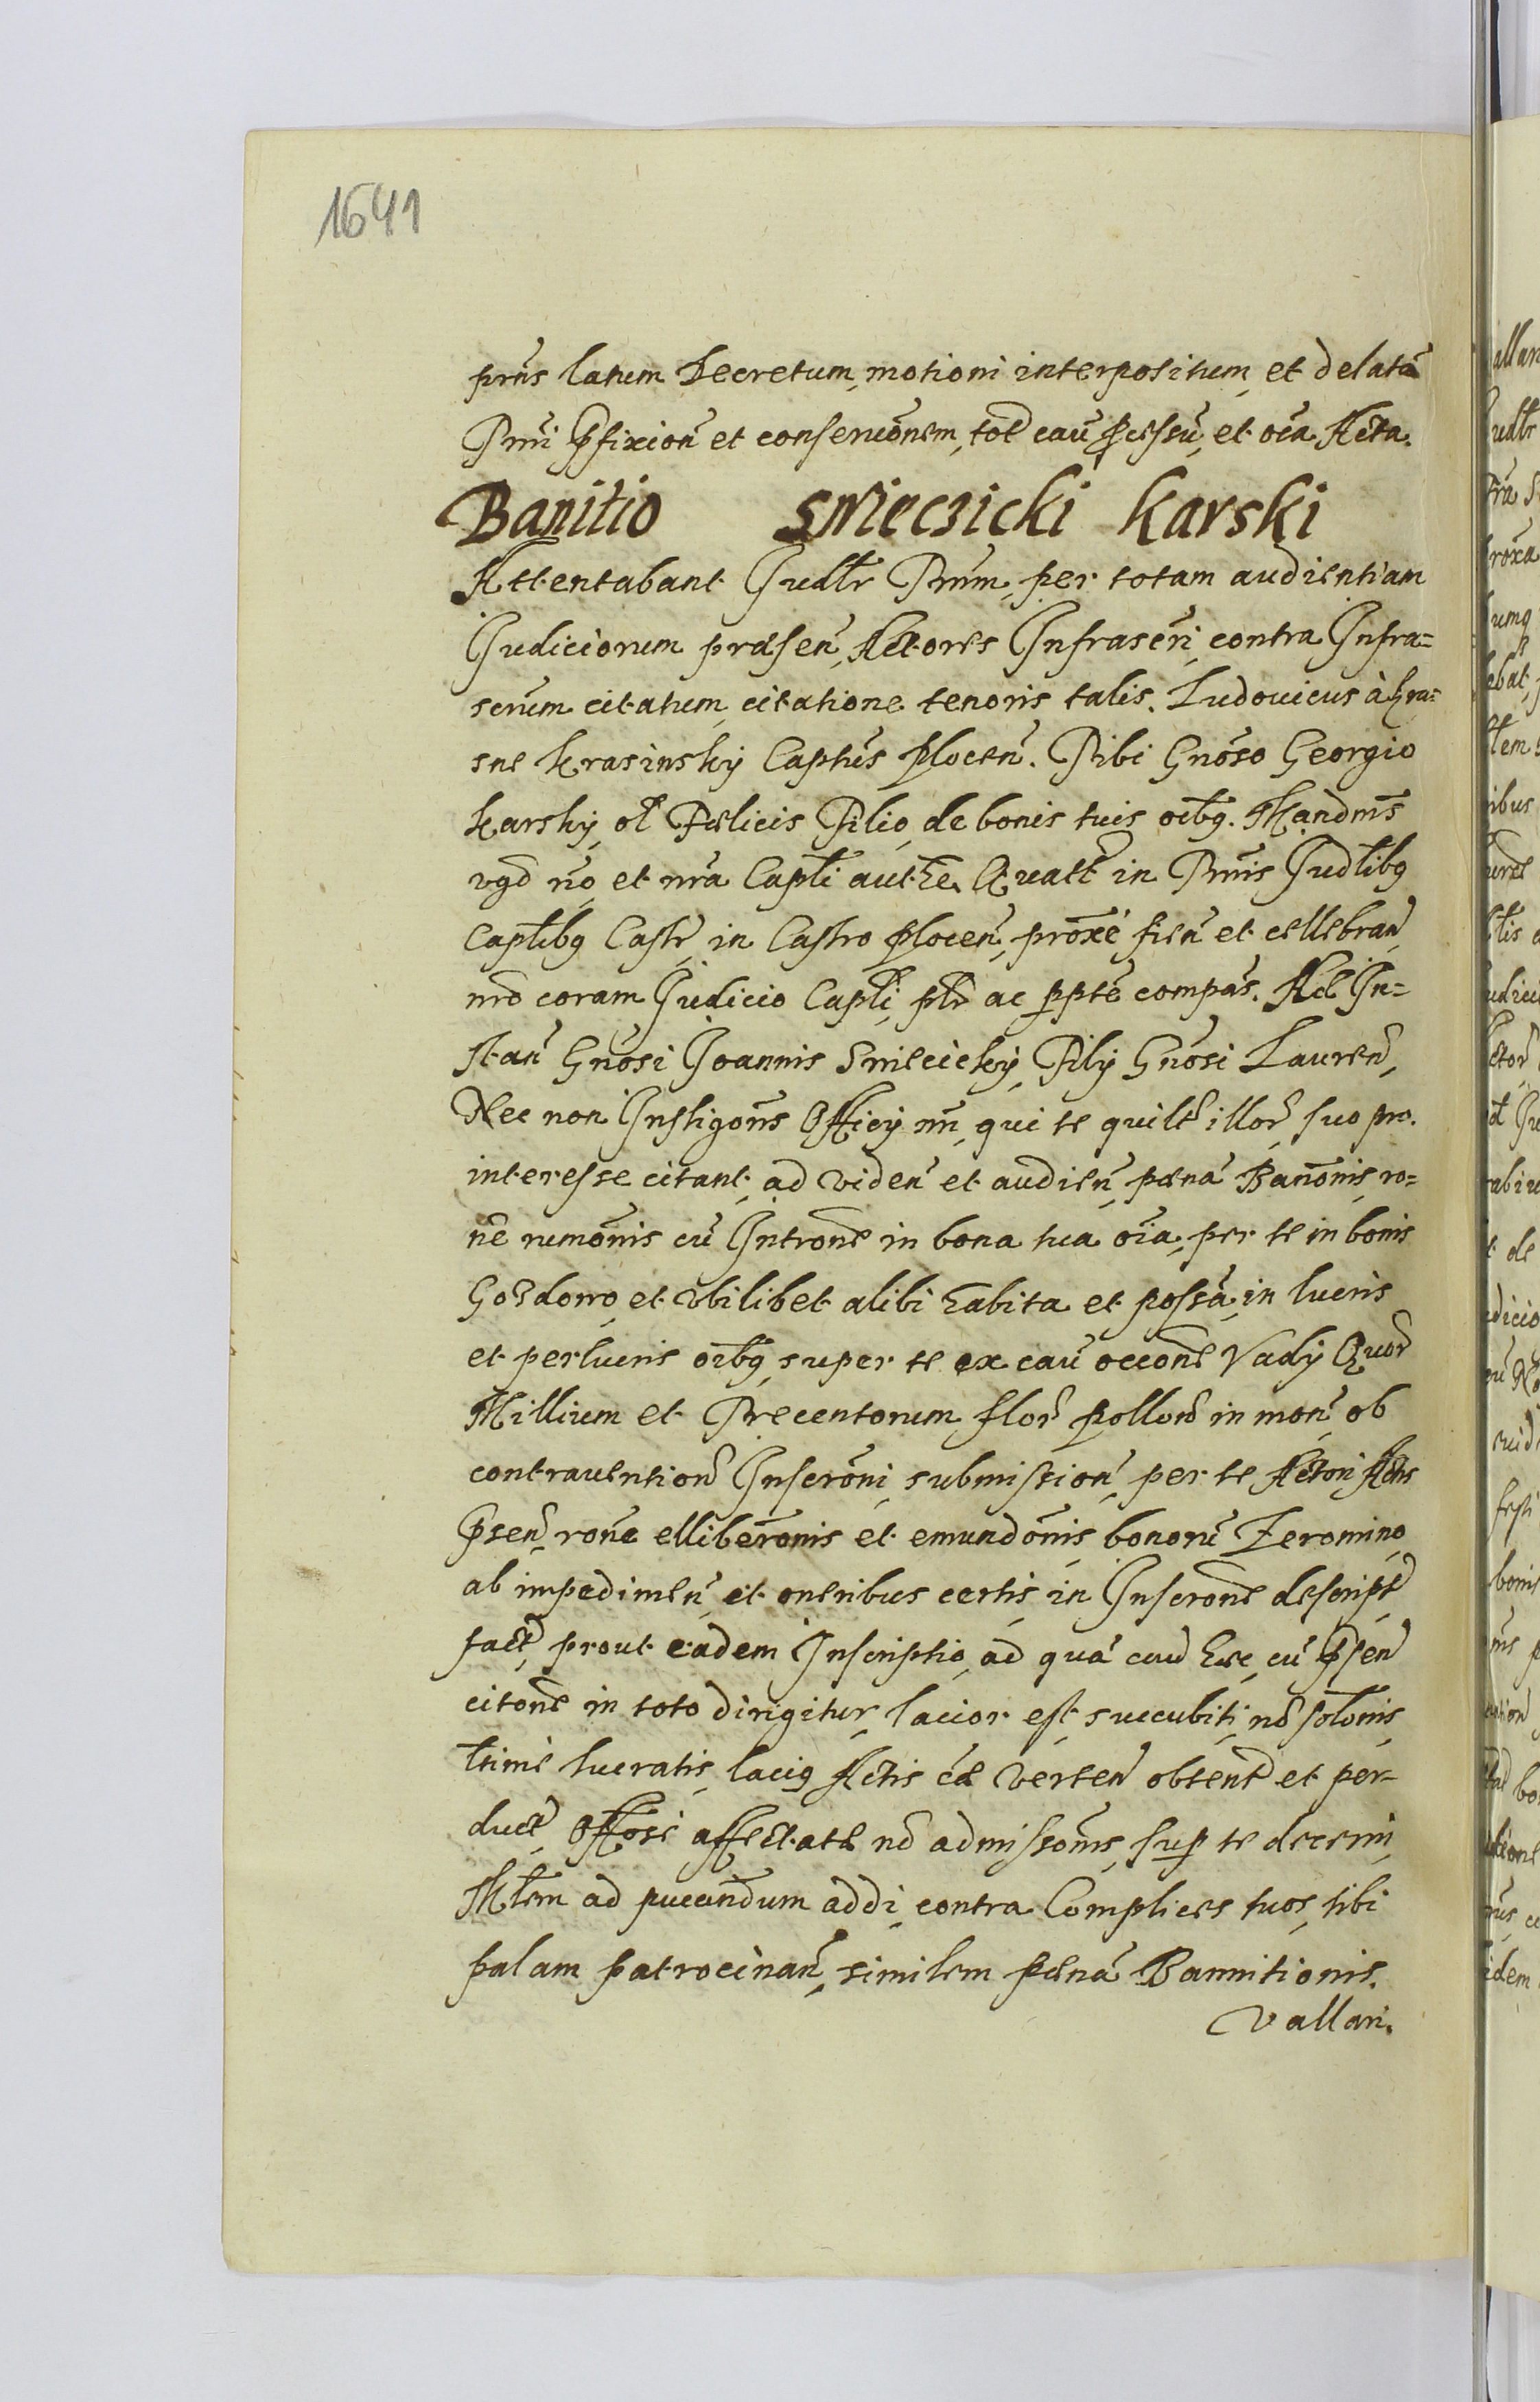 1641
prńs latum Decretum, motioni interpositum, et delatã
Trmi p̃fixioñ et conseruõnem, tot̃ cau p̃cessũ, et oĩa Acta.
Banitio Smieczicki Karski
Attentabant Judlr Trmm, per totam audientiam
Judiciorum præsen̄, Actores Infrascrĩ, contra Infra=
scrũm citatum, citatione tenoris talis. Ludouicus à Kra=
sne Krasinsky Captũs Plocen̄. Tibi Gnõso Georgio
Karsky, ol Fælicis Filio, de bonis tuis oib9. Mandm̃s
vgd nõ, et nrã Capl̃i autħe. Quatt in Trmis Judl̃ib9
Capl̃ib9 Castr̃ in Castro Plocen̄, proxẽ fien̄ et cellebran̄
nrõ coram Judicio Capl̃i, pl̃r ac pptẽ compãs. Ad In=
stan̄ Gnõsi Joannis Smiecicky, Filÿ Gnõsi Lauren̄,
Nec non Instigõris Officÿ nr̃i, qui te quilt illor̃ suo pro.
interesse citant, ad viden̄ et audien̄ pænã Banõnis, ro=
nẽ rumõnis cũ Intronẽ in bona tua oĩa, per te in bonis
Gozdowo, et vbilibet alibi habita et possã, in lucris
et perlucris oib9, super te ex cau occonẽ Vadÿ Quor̃
Millium et Trecentorum flor̃ pollor̃ in mon̄ ob
contrauention̄ Inscrõni, submission̄ per te Actori Actis
p̃sen̄, ronẽ elliberõnis et emundõnis bonorũ Zeromino
ab impedimen̄ et oneribus certis in Inscronẽ descript
fact̃, prout eadem Inscriptio, ad quã cau hæc, cũ p̃sen̄
citonẽ in toto dirigitur, lacior est, succubiti, nõ solõnis,
ltimẽ lucratis, laci9 Actis eã verten̄ obtent̃ et per=
duct̃, Offose affectatæ nõ admissõnis, sup te decerni,
Mlem ad pucandum addi, contra Complices tuos, tibi
palam patrocinan̄, similem pænã Bannitionis.
Vallari.